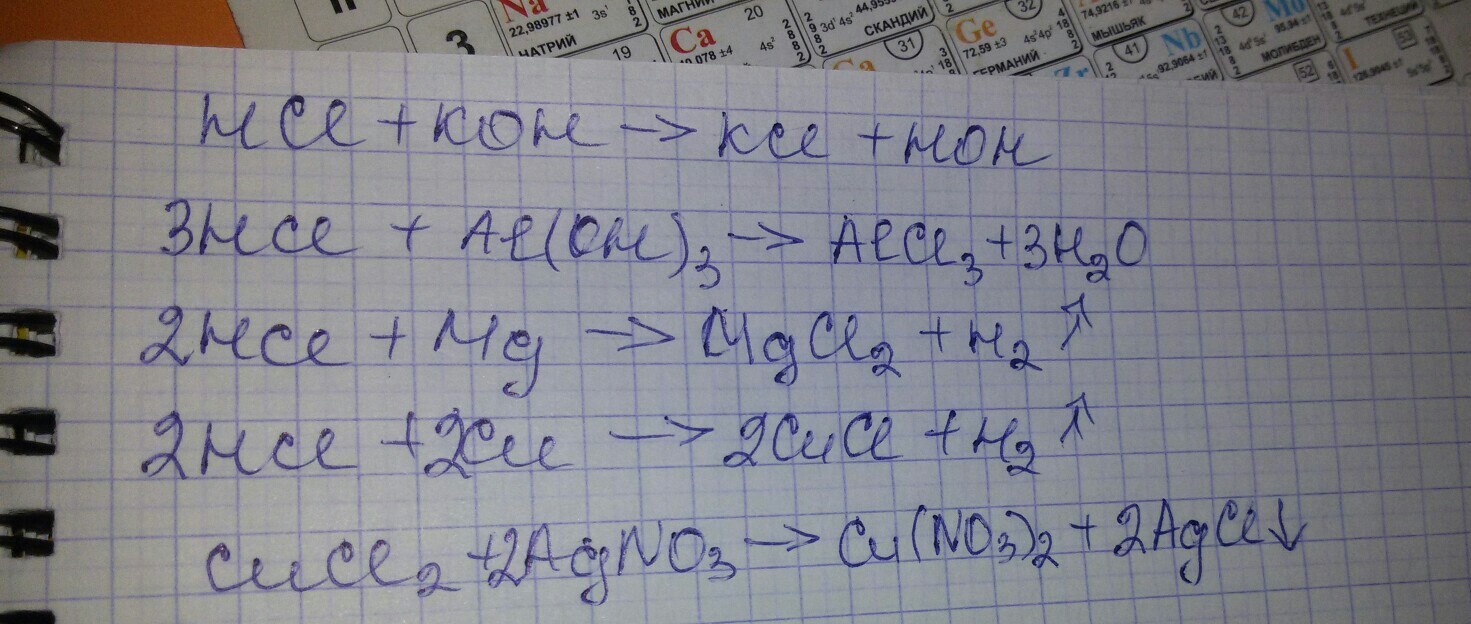 Na
22,98977 ±1
3s¹
НАТРИЙ
3
19
МАГНИЙ
20
Ca
4s²
СКАНДИЙ
31
Ge
32
72,59 ±3
4s²4p²
ГЕРМАНИЙ
74,9216
МЫШЬЯК
41
Nb
92,9064
Zr
42
Mo
МОЛИБДЕН
ТЕХНЕЦИЙ
52
53
I
HCl + KOH → KCl + HOH
3HCl + Al(OH)₃ → AlCl₃ + 3H₂O
2HCl + Mg → MgCl₂ + H₂ ↑
2HCl + 2Cu → 2CuCl + H₂ ↑
CuCl₂ + 2AgNO₃ → Cu(NO₃)₂ + 2AgCl↓